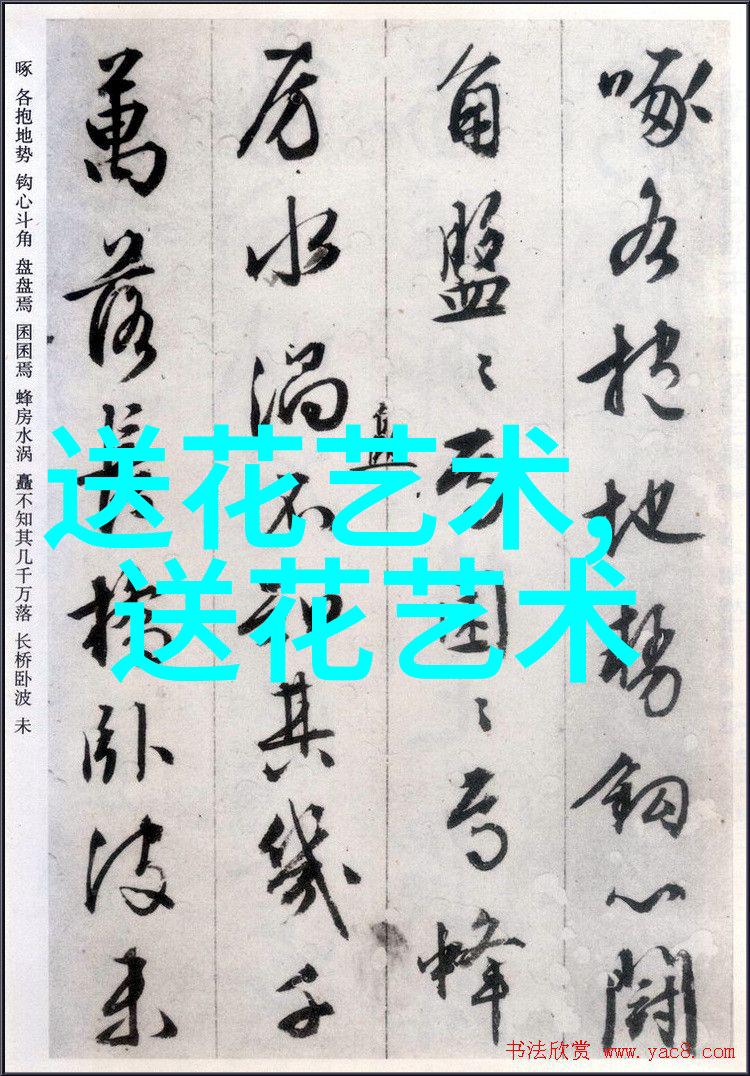 啄各抱地勢鈎心鬪
角盤〻焉囷〻焉蜂
房水渦矗不知其幾千
萬落長橋卧波未
啄 各抱地势 钩心斗角 盘盘焉 囷囷焉 蜂房水涡 矗不知其几千万落 长桥卧波 未
送花艺术,
送花艺术
书法欣赏 www.yac8.com